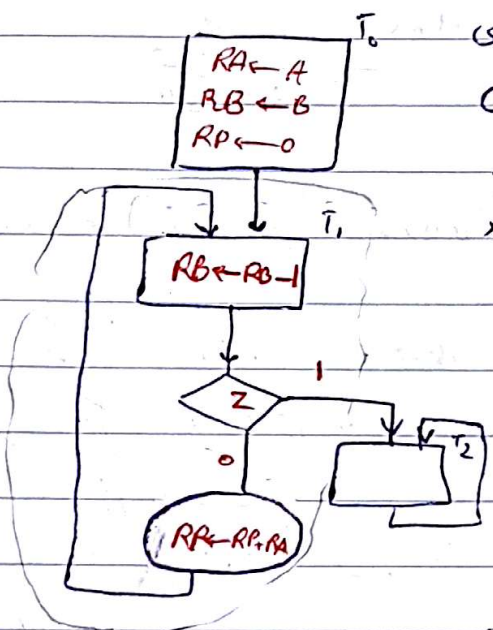 T₀
RA ← A
RB ← B
RP ← 0
T₁
RB ← RB - 1
1
Z
T₂
0
RP ← RP + RA